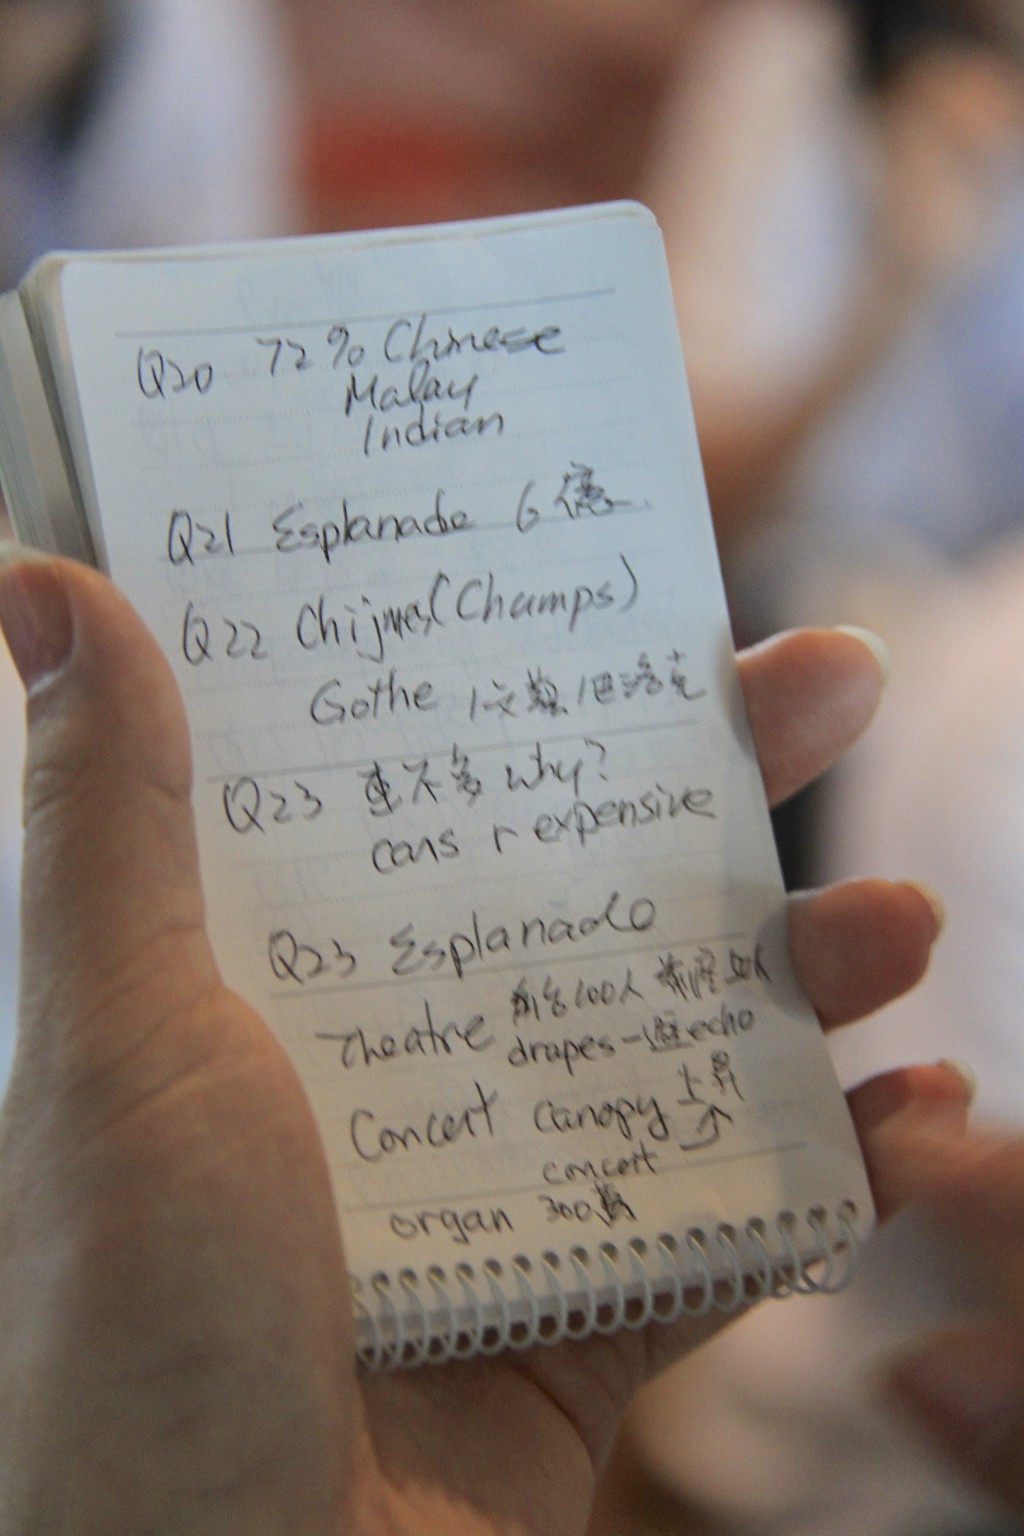 Q20 72% Chinese
Malay
Indian
Q21 Esplanade 6億
Q22 Chijmes(Champs)
Gothe /文藝/巴洛克
Q23 車不多 why?
cars r expensive
Q23 Esplanade
Theatre 舞台100人 樂池50人
drapes-避echo
Concert canopy上昇
concert
organ 300萬